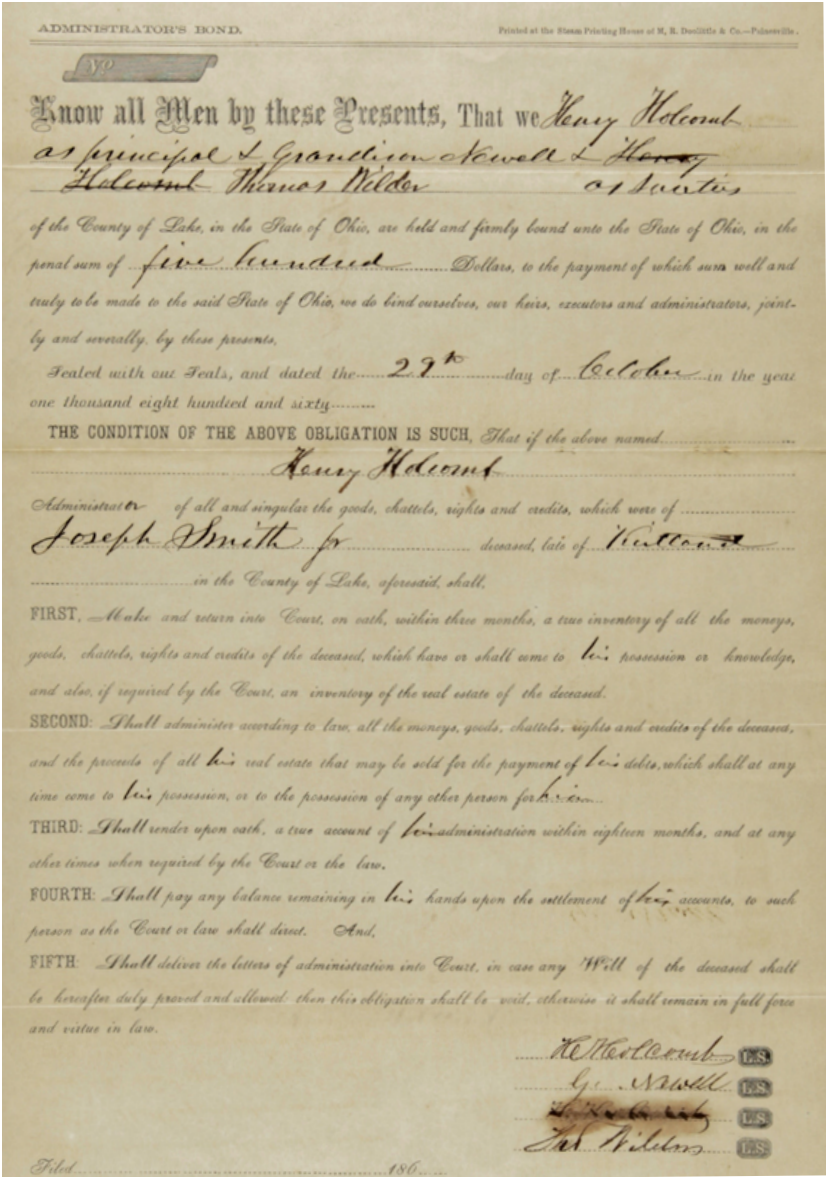 ADMINISTRATOR'S BOND.
Printed at the Steam Printing House of M. R. Doolittle & Co.—Painesville.
No
Know all Men by these Presents, That we Henry Holcomb
as principal & Grandison Newell & Henry
Holcomb Thomas Wilder as Sureties
of the County of Lake, in the State of Ohio, are held and firmly bound unto the State of Ohio, in the
penal sum of five hundred Dollars, to the payment of which sum well and
truly to be made to the said State of Ohio, we do bind ourselves, our heirs, executors and administrators, joint-
ly and severally, by these presents.
Sealed with our Seals, and dated the 29th day of October in the year
one thousand eight hundred and sixty
THE CONDITION OF THE ABOVE OBLIGATION IS SUCH, That if the above named
Henry Holcomb
Administrator of all and singular the goods, chattels, rights and credits, which were of
Joseph Smith Jr deceased, late of Kirtland
in the County of Lake, aforesaid, shall,
FIRST, Make and return into Court, on oath, within three months, a true inventory of all the moneys,
goods, chattels, rights and credits of the deceased, which have or shall come to his possession or knowledge,
and also, if required by the Court, an inventory of the real estate of the deceased.
SECOND: Shall administer according to law, all the moneys, goods, chattels, rights and credits of the deceased,
and the proceeds of all his real estate that may be sold for the payment of his debts, which shall at any
time come to his possession, or to the possession of any other person for him
THIRD: Shall render upon oath, a true account of his administration within eighteen months, and at any
other times when required by the Court or the law.
FOURTH: Shall pay any balance remaining in his hands upon the settlement of his accounts, to such
person as the Court or law shall direct. And,
FIFTH: Shall deliver the letters of administration into Court, in case any Will of the deceased shall
be hereafter duly proved and allowed: then this obligation shall be void, otherwise it shall remain in full force
and virtue in law.
H Holcomb L.S.
G. Newell L.S.
L.S.
Tho Wilder L.S.
Filed 186